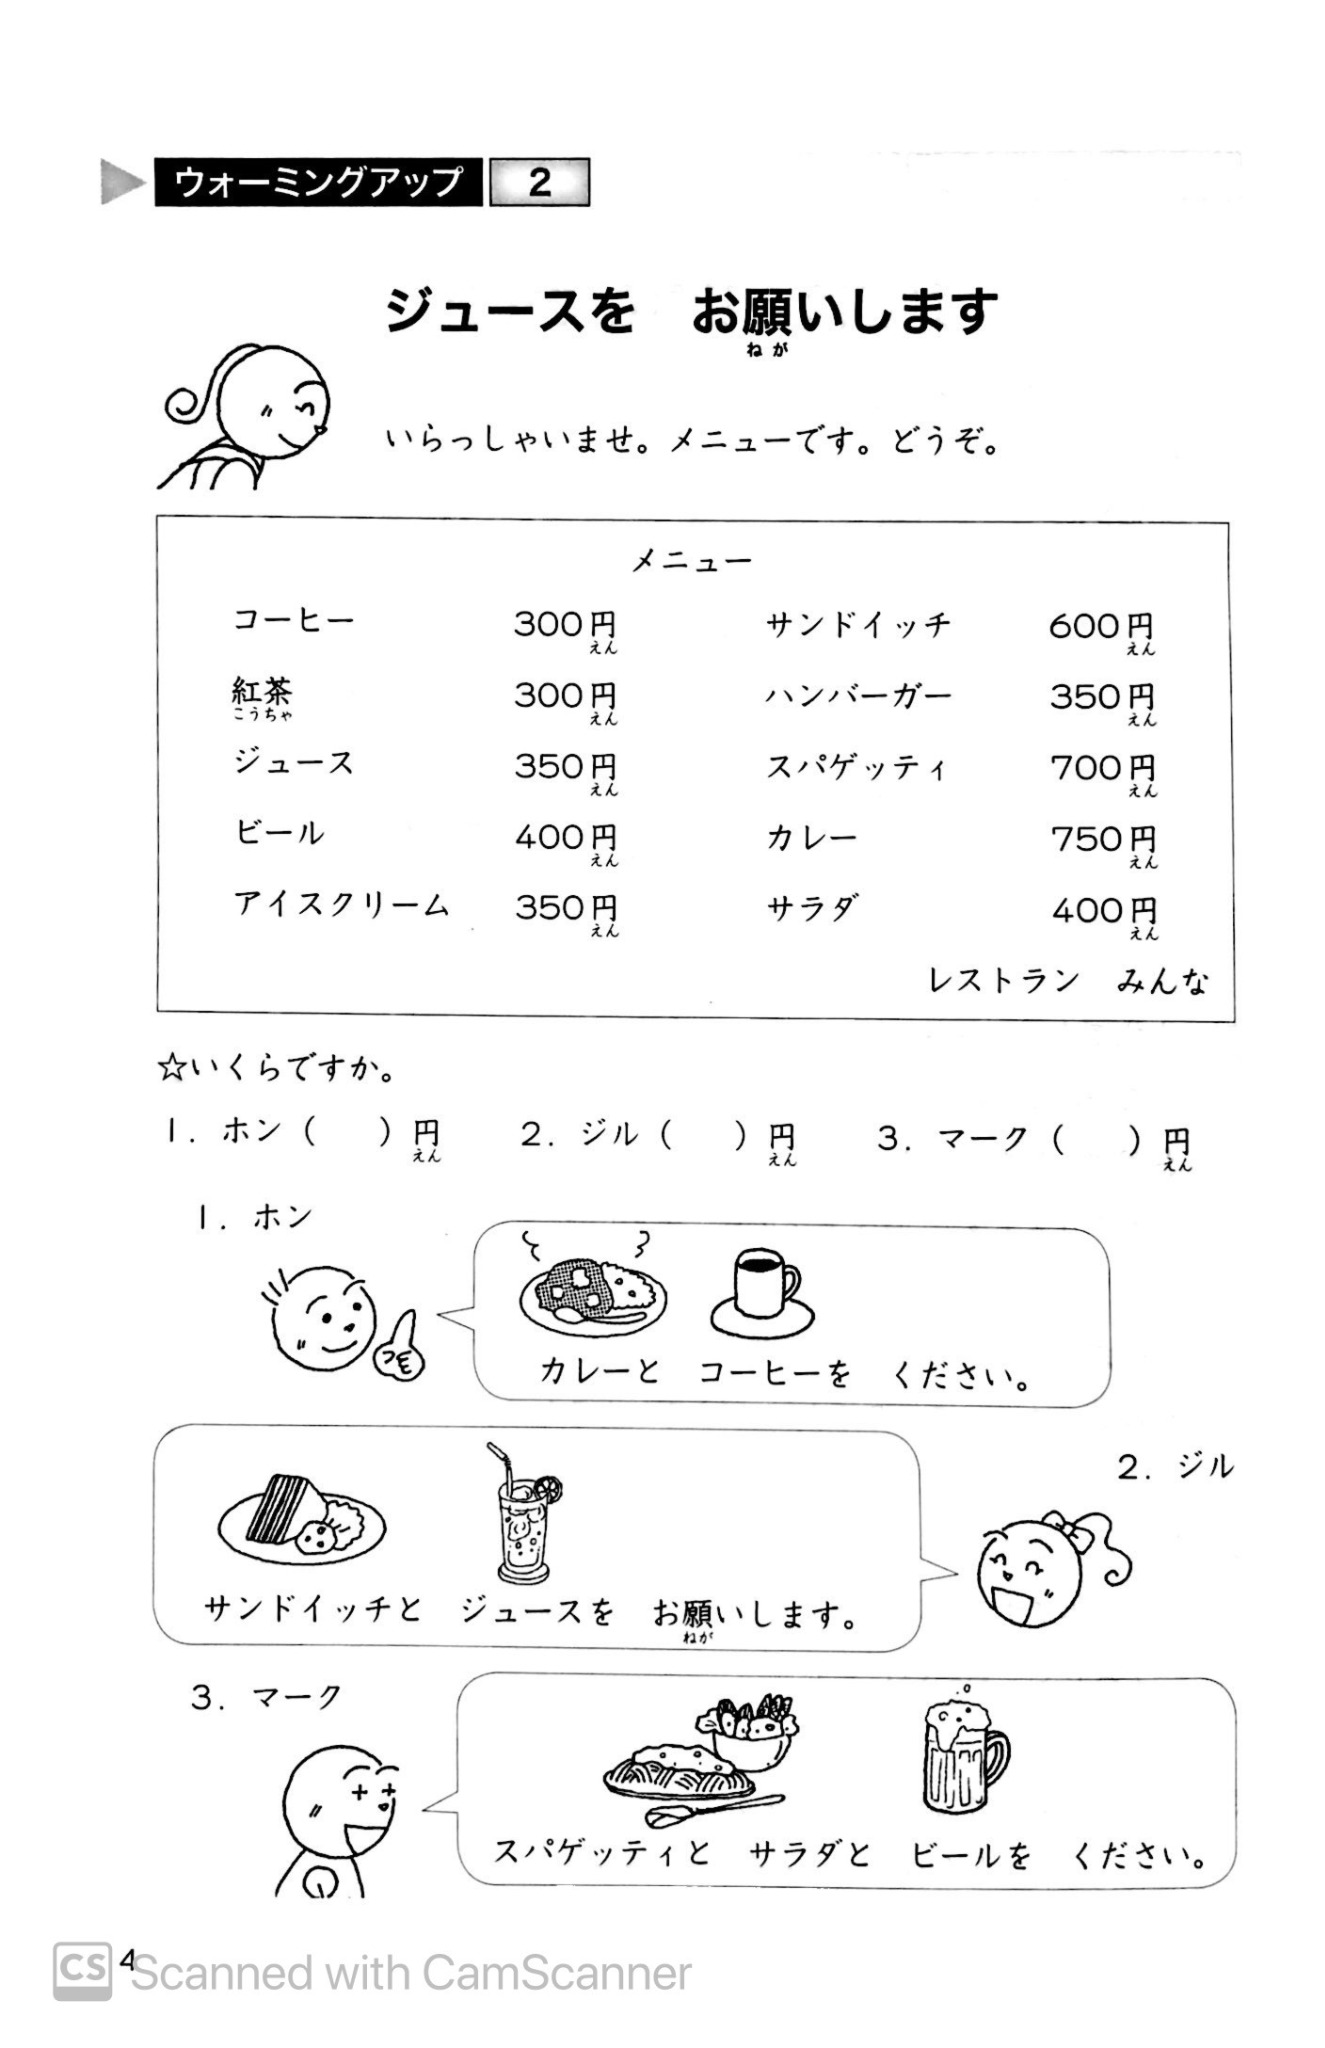 ウォーミングアップ 2
ジュースを　お願いします
ねが
いらっしゃいませ。メニューです。どうぞ。
メニュー
コーヒー 300円 サンドイッチ 600円
えん えん
紅茶 300円 ハンバーガー 350円
こうちゃ えん えん
ジュース 350円 スパゲッティ 700円
えん えん
ビール 400円 カレー 750円
えん えん
アイスクリーム 350円 サラダ 400円
えん えん
レストラン　みんな
☆いくらですか。
1. ホン（　　）円 2. ジル（　　）円 3. マーク（　　）円
えん えん えん
1. ホン
カレーと　コーヒーを　ください。
2. ジル
サンドイッチと　ジュースを　お願いします。
ねが
3. マーク
スパゲッティと　サラダと　ビールを　ください。
4
CS Scanned with CamScanner